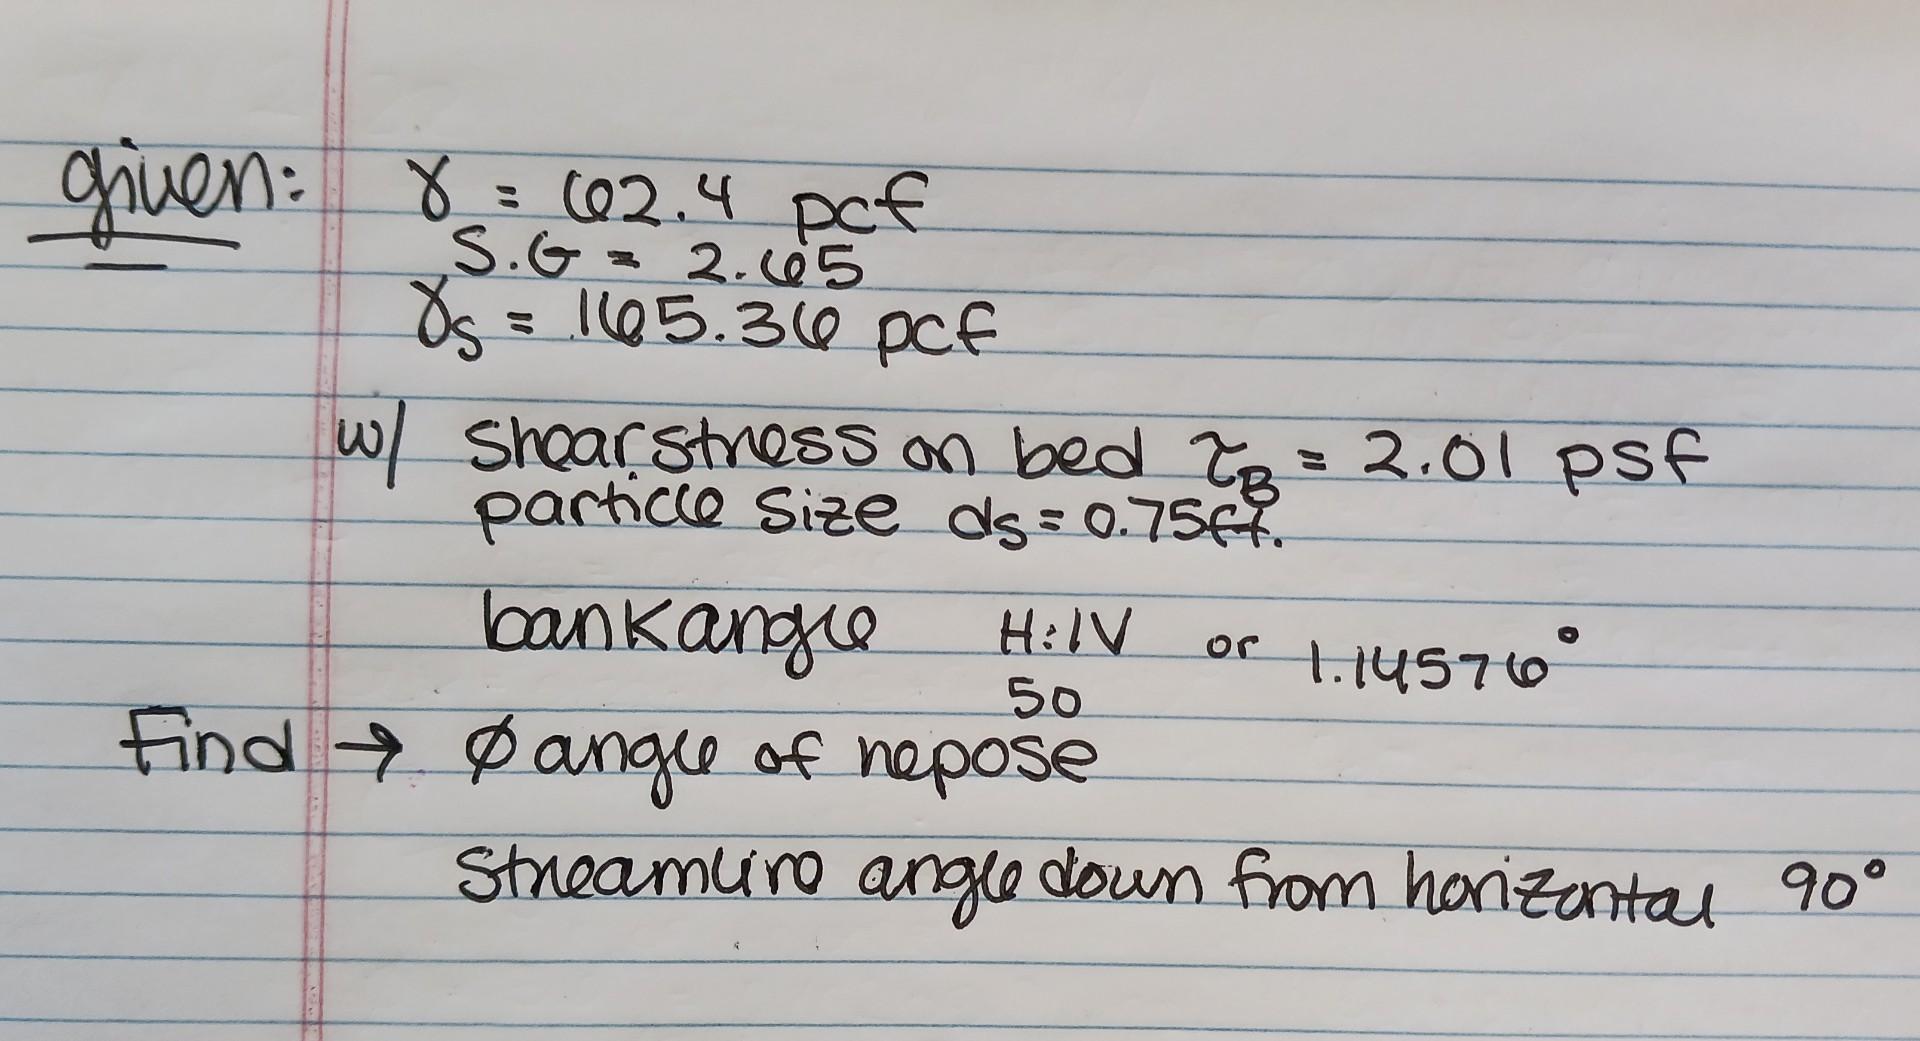 given: γ = 62.4 pcf
S.G = 2.65
γs = 165.36 pcf
w/ shear stress on bed τB = 2.01 psf
particle size ds = 0.75ft.
bank angle H:1V or 1.14576°
50
Find → Ø angle of repose
Streamline angle down from horizontal 90°